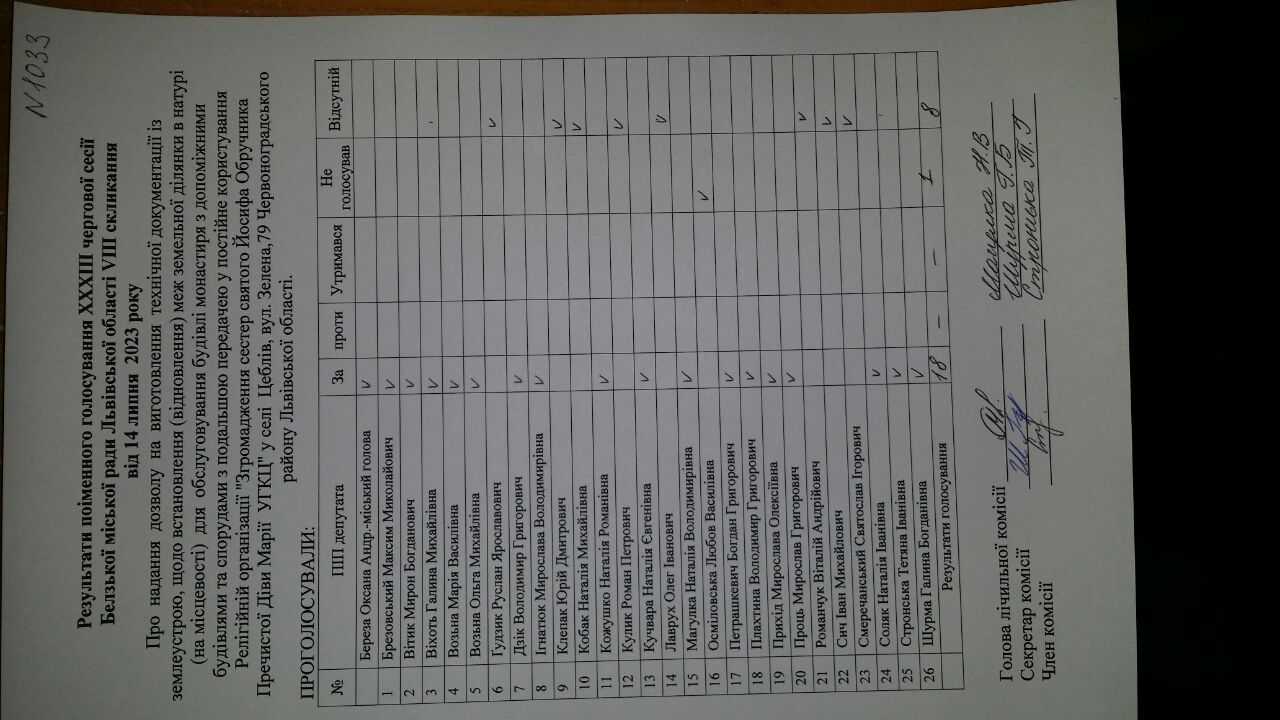 N1033
Результати поіменного голосування XXXIII чергової сесії
Белзької міської ради Львівської області VIII скликання
від 14 липня 2023 року
Про надання дозволу на виготовлення технічної документації із
землеустрою, щодо встановлення (відновлення) меж земельної ділянки в натурі
(на місцевості) для обслуговування будівлі монастиря з допоміжними
будівлями та спорудами з подальшою передачею у постійне користування
Релігійній організації "Згромадження сестер святого Йосифа Обручника
Пречистої Діви Марії УГКЦ" у селі Цеблів, вул. Зелена,79 Червоноградського
району Львівської області.
ПРОГОЛОСУВАЛИ:
№ ПІП депутата За проти Утримався Не голосував Відсутній
Береза Оксана Андр.-міський голова ✓
1 Брезовський Максим Миколайович ✓
2 Вітик Мирон Богданович ✓
3 Віхоть Галина Михайлівна ✓
4 Возьна Марія Василівна ✓
5 Возьна Ольга Михайлівна ✓
6 Гудзик Руслан Ярославович ✓
7 Дзік Володимир Григорович ✓
8 Ігнатюк Мирослава Володимирівна ✓
9 Клепак Юрій Дмитрович ✓
10 Кобак Наталія Михайлівна ✓
11 Кожушко Наталія Романівна ✓
12 Кулик Роман Петрович ✓
13 Кучвара Наталія Євгенівна ✓
14 Лаврух Олег Іванович ✓
15 Магулка Наталія Володимирівна ✓
16 Осміловська Любов Василівна ✓
17 Петрашкевич Богдан Григорович ✓
18 Плахтина Володимир Григорович ✓
19 Прихід Мирослава Олексіївна ✓
20 Проць Мирослав Григорович ✓
21 Романчук Віталій Андрійович ✓
22 Сич Іван Михайлович ✓
23 Смеречанський Святослав Ігорович ✓
24 Соляк Наталія Іванівна ✓
25 Стронська Тетяна Іванівна ✓
26 Шурма Галина Богданівна ✓
Результати голосування 18 – – 1 8
Голова лічильної комісії
Секретар комісії Шурма Г.Б
Член комісії